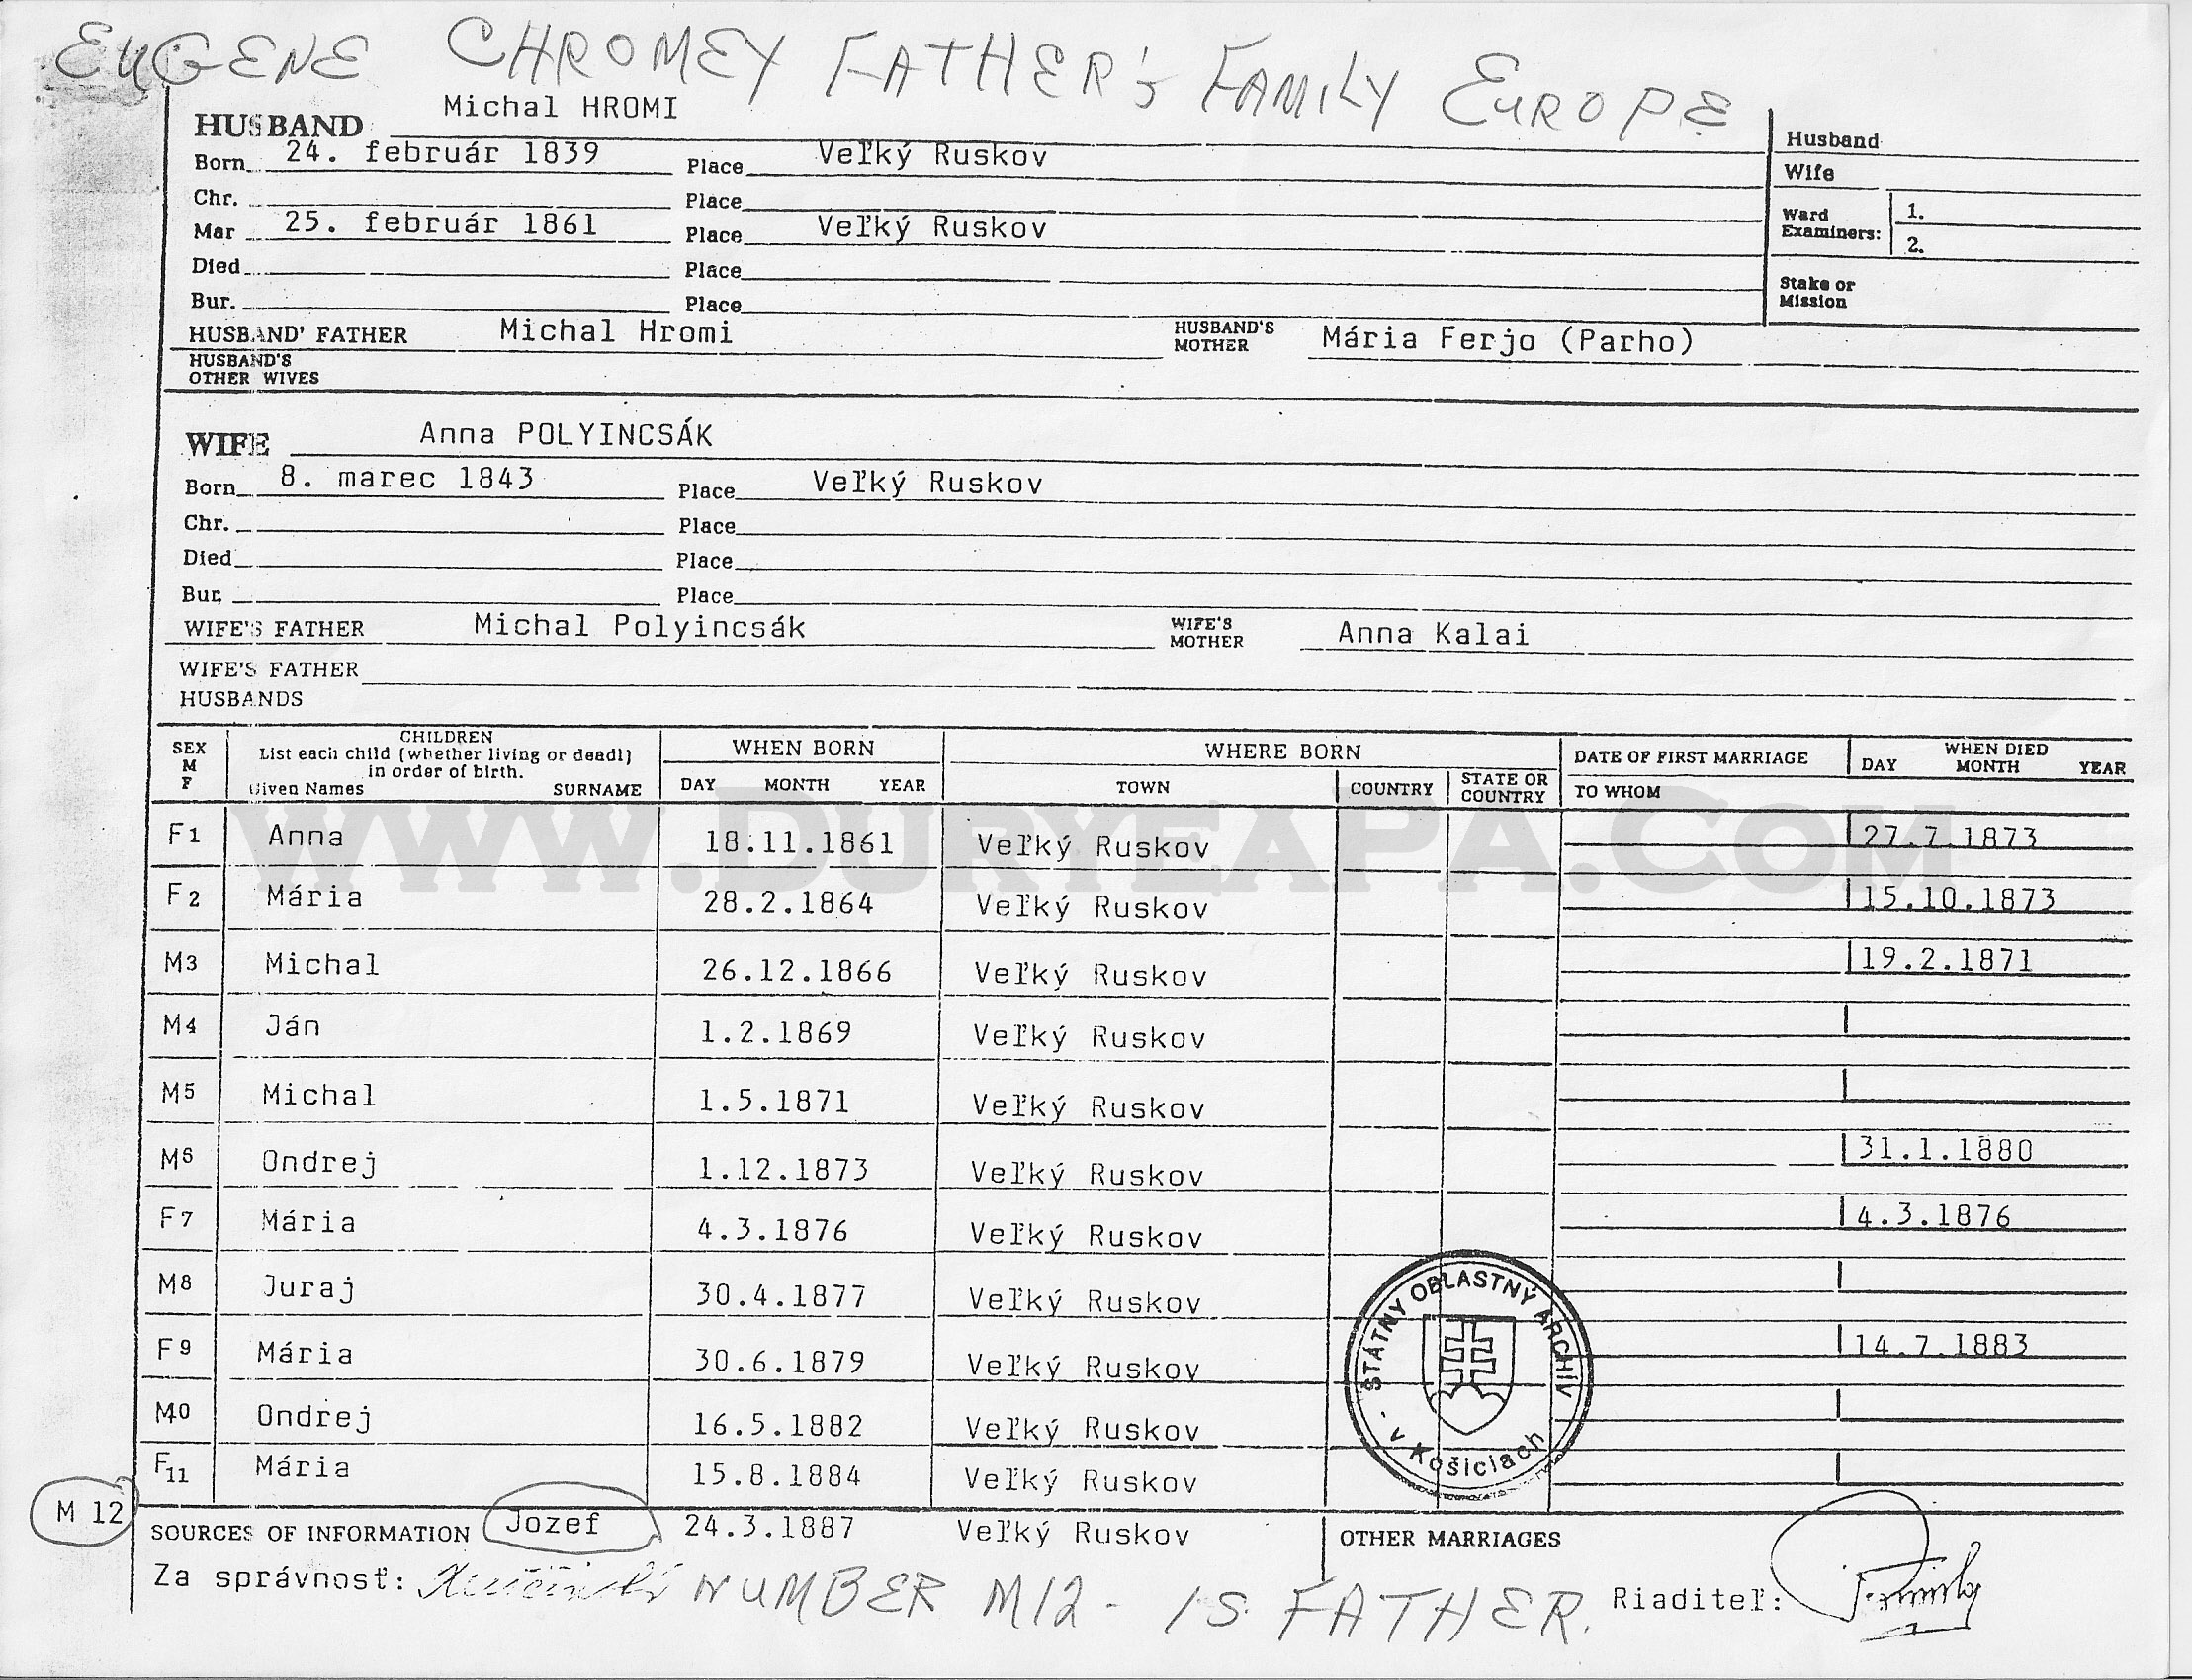 EUGENE CHROMEY FATHER'S FAMILY EUROPE
HUSBAND Michal HROMI
Husband
Born 24. február 1839 Place Veľký Ruskov
Wife
Chr. Place
Ward Examiners: 1.
2.
Mar 25. február 1861 Place Veľký Ruskov
Died Place
Stake or Mission
Bur. Place
HUSBAND' FATHER Michal Hromi HUSBAND'S MOTHER Mária Ferjo (Parho)
HUSBAND'S OTHER WIVES
WIFE Anna POLYINCSÁK
Born 8. marec 1843 Place Veľký Ruskov
Chr. Place
Died Place
Bur. Place
WIFE'S FATHER Michal Polyincsák WIFE'S MOTHER Anna Kalai
WIFE'S FATHER
HUSBANDS
SEX M F
CHILDREN
List each child (whether living or dead) in order of birth.
Given Names SURNAME
WHEN BORN
DAY MONTH YEAR
WHERE BORN
TOWN COUNTRY STATE OR COUNTRY
DATE OF FIRST MARRIAGE
TO WHOM
WHEN DIED
DAY MONTH YEAR
WWW.DURYEAPA.COM
F1 Anna 18.11.1861 Veľký Ruskov 27.7.1873
F2 Mária 28.2.1864 Veľký Ruskov 15.10.1873
M3 Michal 26.12.1866 Veľký Ruskov 19.2.1871
M4 Ján 1.2.1869 Veľký Ruskov
M5 Michal 1.5.1871 Veľký Ruskov
M6 Ondrej 1.12.1873 Veľký Ruskov 31.1.1880
F7 Mária 4.3.1876 Veľký Ruskov 4.3.1876
M8 Juraj 30.4.1877 Veľký Ruskov
F9 Mária 30.6.1879 Veľký Ruskov 14.7.1883
M10 Ondrej 16.5.1882 Veľký Ruskov
F11 Mária 15.8.1884 Veľký Ruskov
ŠTÁTNY OBLASTNÝ ARCHÍV
v Košiciach
M 12
SOURCES OF INFORMATION Jozef 24.3.1887 Veľký Ruskov OTHER MARRIAGES
Za správnosť: NUMBER M12 - IS FATHER. Riaditeľ: